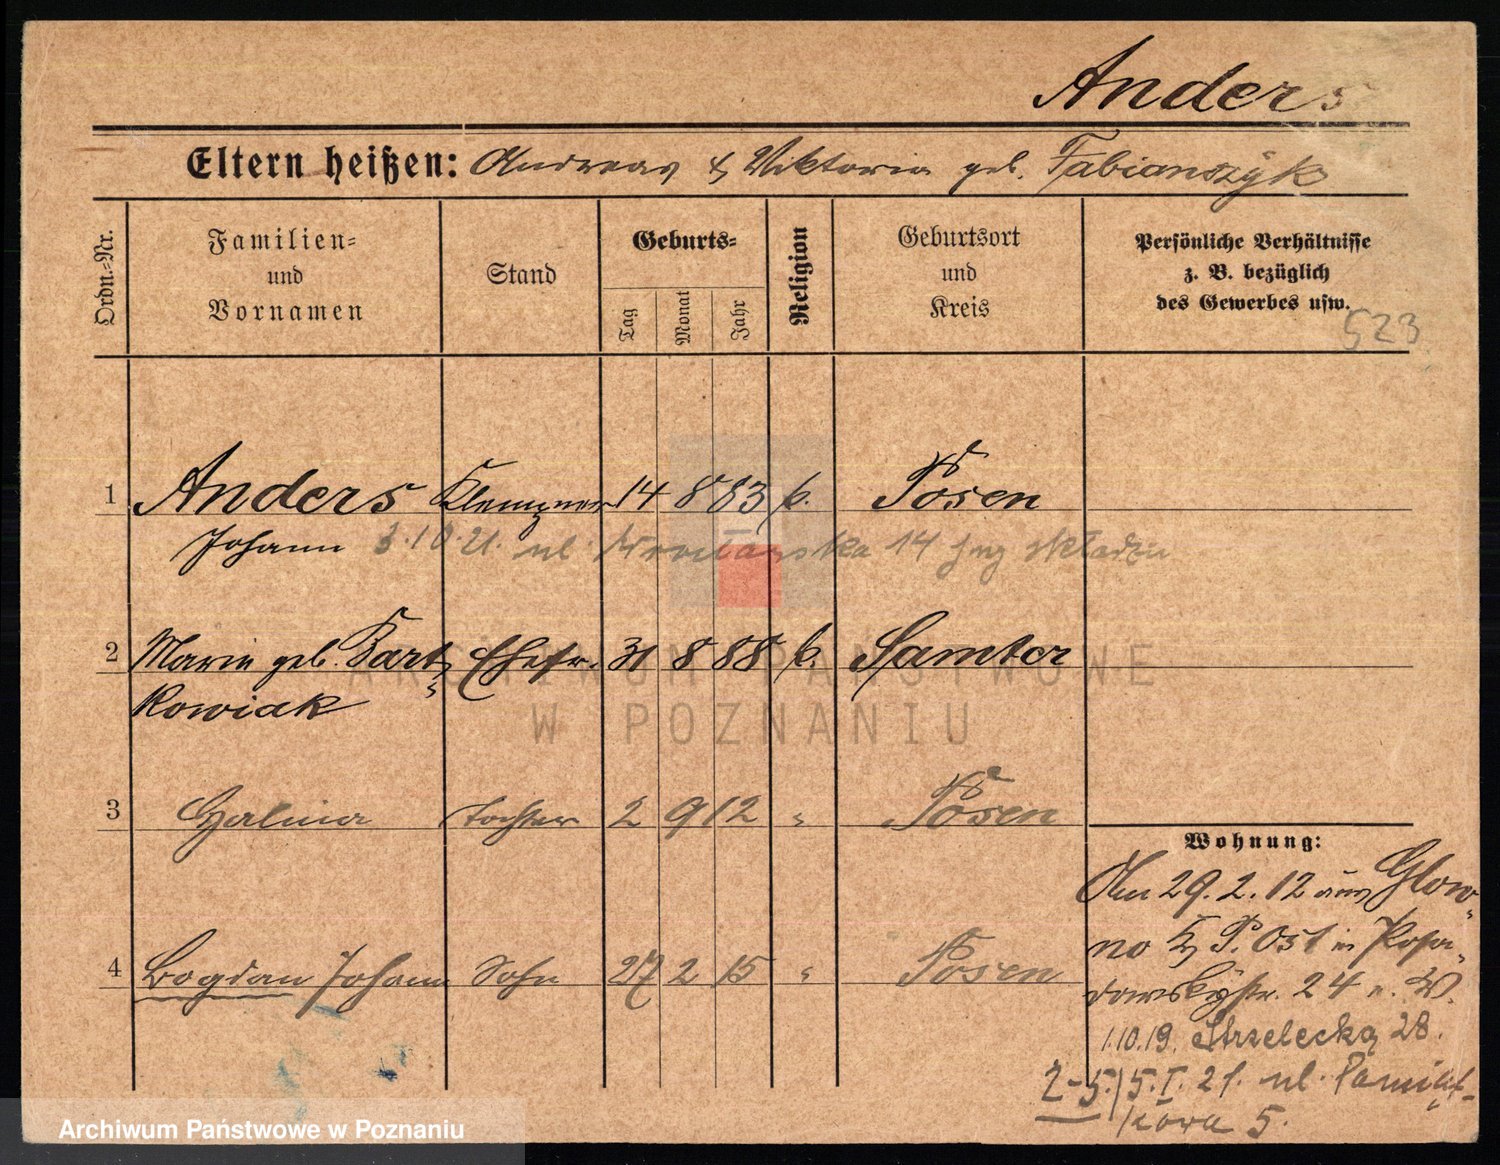 Anders
Eltern heißen: Andreas & Viktoria geb. Fabianszÿk
Ordn.=Nr.
Familien= und Vornamen
Stand
Geburts=
Tag
Monat
Jahr
Religion
Geburtsort und Kreis
Persönliche Verhältnisse z. B. bezüglich des Gewerbes usw.
523
1 Anders Klempner 14 8 83 k. Posen
Johann 3.10.21. ul. 14
2 Marie geb. Bart= Ehefr. 31 8 88 k. Samter
kowiak
3 Halina Tochter 2 9 12 " Posen
4 Bogdan Johann Sohn 27 2 15 " Posen
Wohnung:
Am 29.2.12 aus Glow=
no Kr. P. Ost in Posa=
dowskÿstr. 24 n. W.
1.10.19. Strzelecka 28.
2-5. 5.I.21. ul. Pamiąt-
kowa 5.
ARCHIWUM PAŃSTWOWE
W POZNANIU
Archiwum Państwowe w Poznaniu